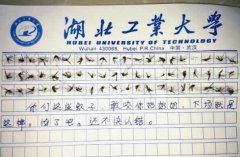 湖北工业大学
HUBEI UNIVERSITY OF TECHNOLOGY
Wuhan 430068, Hubei P.R.China 中国·武汉
你们这些蚊子,敢咬你奶奶的,下场就是
这样,怕了吧。还不快认错。